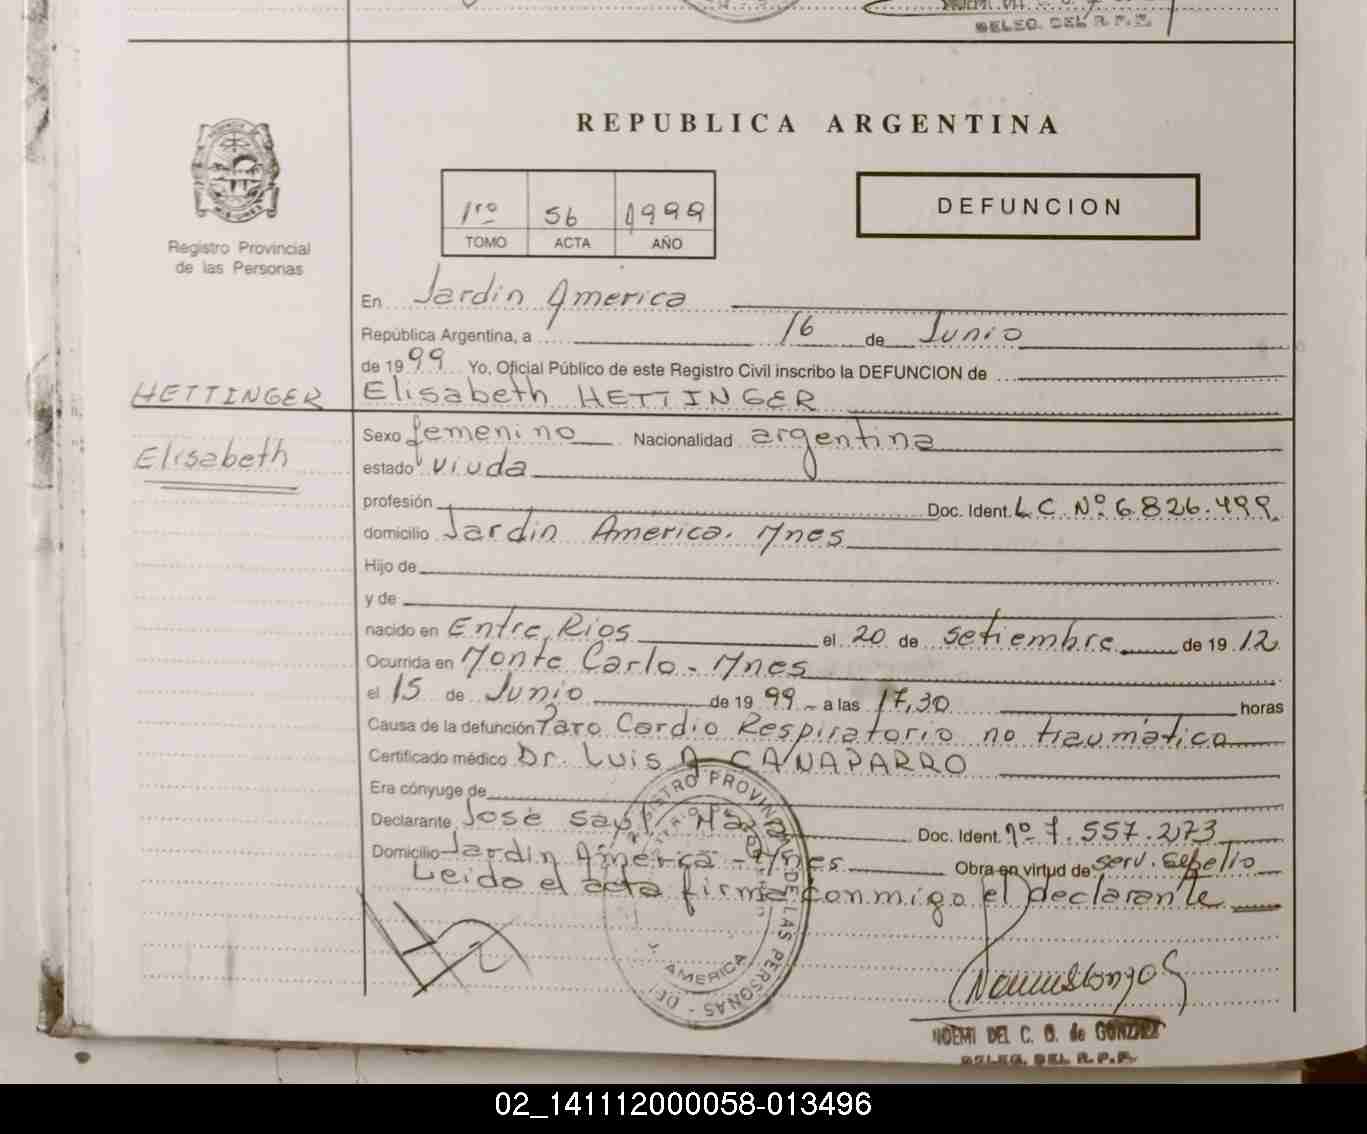 DELEG. DEL R.P.P.
REPUBLICA ARGENTINA
1ro 56 1999
TOMO ACTA AÑO
DEFUNCION
Registro Provincial
de las Personas
En Jardin America
República Argentina, a 16 de Junio
de 1999 Yo, Oficial Público de este Registro Civil inscribo la DEFUNCION de
HETTINGER
Elisabeth HETTINGER
Elisabeth
Sexo femenino Nacionalidad argentina
estado viuda
profesión Doc. Ident. L.C. Nº 6.826.499
domicilio Jardin America. Mnes
Hijo de
y de
nacido en Entre Rios el 20 de setiembre de 1912
Ocurrida en Monte Carlo - Mnes
el 15 de Junio de 1999 a las 17,30 horas
Causa de la defunción Paro Cardio Respiratorio no traumatico
Certificado médico Dr. Luis A CANAPARRO
Era cónyuge de
Declarante José Doc. Ident. nº 7.557.273
Domicilio Jardin América - Mnes Obra en virtud de serv. sepelio
Leido el acta firma conmigo el declarante
REGISTRO PROVINCIAL DE LAS PERSONAS
AMERICA
NOEMI DEL C. G. de GONZALEZ
DELEG. DEL R.P.P.
02_141112000058-013496